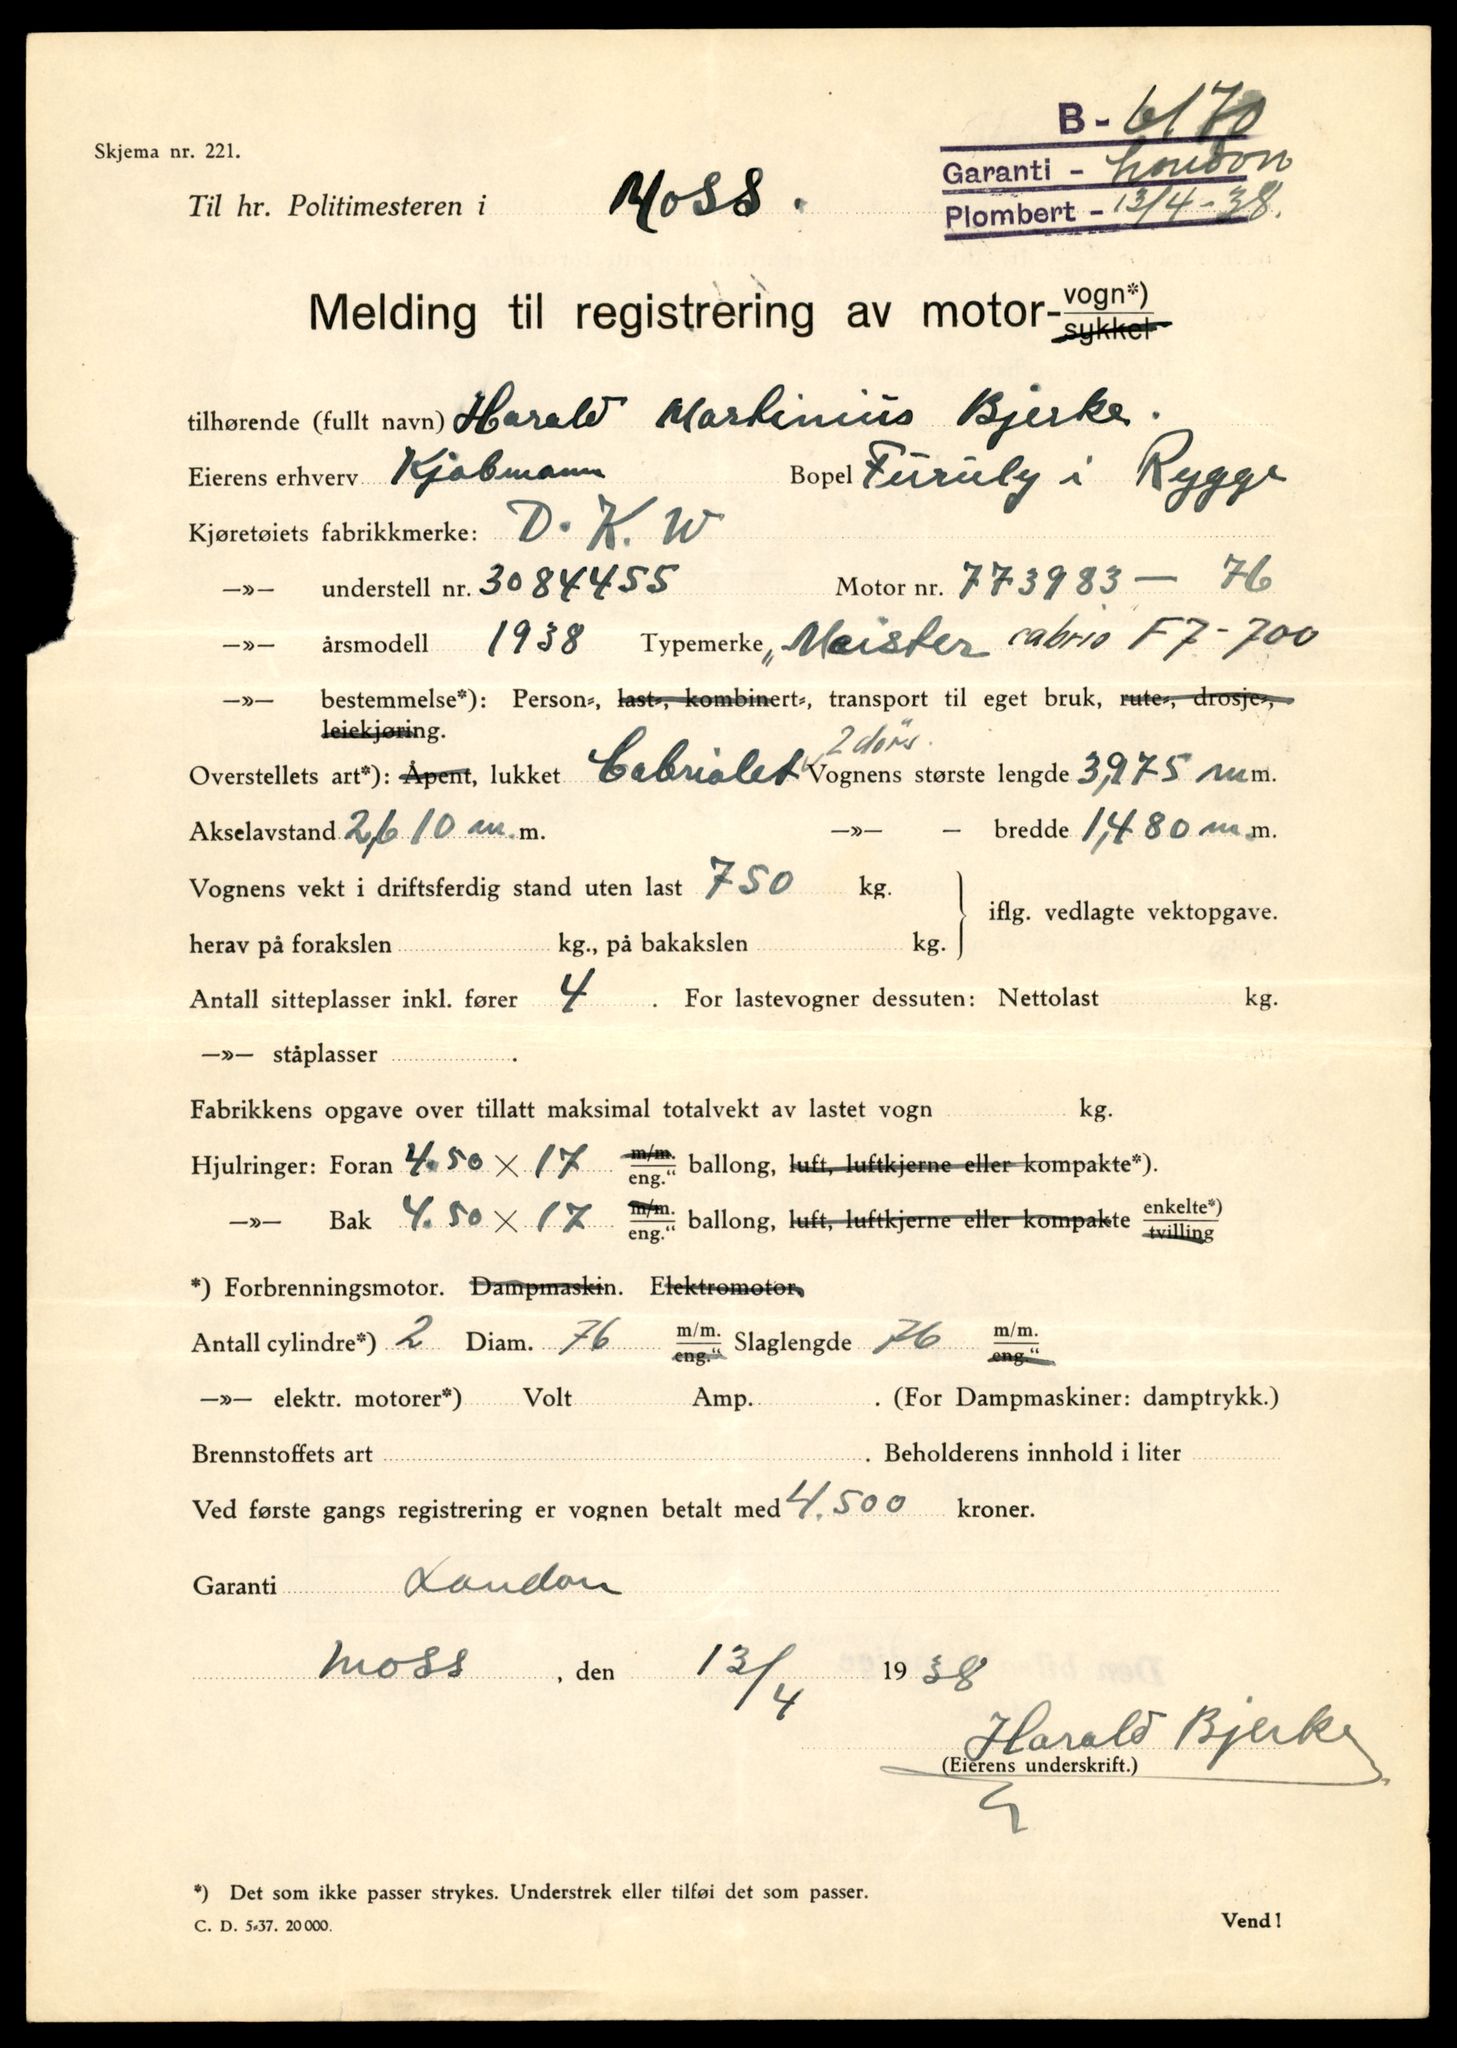 B - 6170
Skjema nr. 221.
Garanti - London
Til hr. Politimesteren i Moss.
Plombert - 13/4-38.
Melding til registrering av motor-vogn*)
sykkel
tilhørende (fullt navn) Harald Martinius Bjerke.
Eierens erhverv Kjøbmann Bopel Furuly i Rygge
Kjøretøiets fabrikkmerke: D. K. W
—»— understell nr. 3084455 Motor nr. 773983 — 76
—»— årsmodell 1938 Typemerke „Meister" cabrio F7-700
—»— bestemmelse*): Person-, last-, kombinert-, transport til eget bruk, rute-, drosje-,
leiekjøring.
2 dørs.
Overstellets art*): Åpent, lukket Cabriolet Vognens største lengde 3,975 m m.
Akselavstand 2,610 m. m. —»— — bredde 1,480 m. m.
Vognens vekt i driftsferdig stand uten last 750 kg.
iflg. vedlagte vektopgave.
herav på forakslen kg., på bakakslen kg.
Antall sitteplasser inkl. fører 4 . For lastevogner dessuten: Nettolast kg.
—»— ståplasser .
Fabrikkens opgave over tillatt maksimal totalvekt av lastet vogn kg.
Hjulringer: Foran 4.50 × 17 m/m. eng." ballong, luft, luftkjerne eller kompakte*).
—»— Bak 4.50 × 17 m/m. eng." ballong, luft, luftkjerne eller kompakte enkelte*) tvilling
*) Forbrenningsmotor. Dampmaskin. Elektromotor.
Antall cylindre*) 2 Diam. 76 m/m. eng." Slaglengde 76 m/m. eng."
—»— elektr. motorer*) Volt Amp. . (For Dampmaskiner: damptrykk.)
Brennstoffets art . Beholderens innhold i liter
Ved første gangs registrering er vognen betalt med 4.500 kroner.
Garanti London
Moss , den 13/4 1938
Harald Bjerke
(Eierens underskrift.)
*) Det som ikke passer strykes. Understrek eller tilføi det som passer.
C. D. 5-37. 20 000.
Vend!